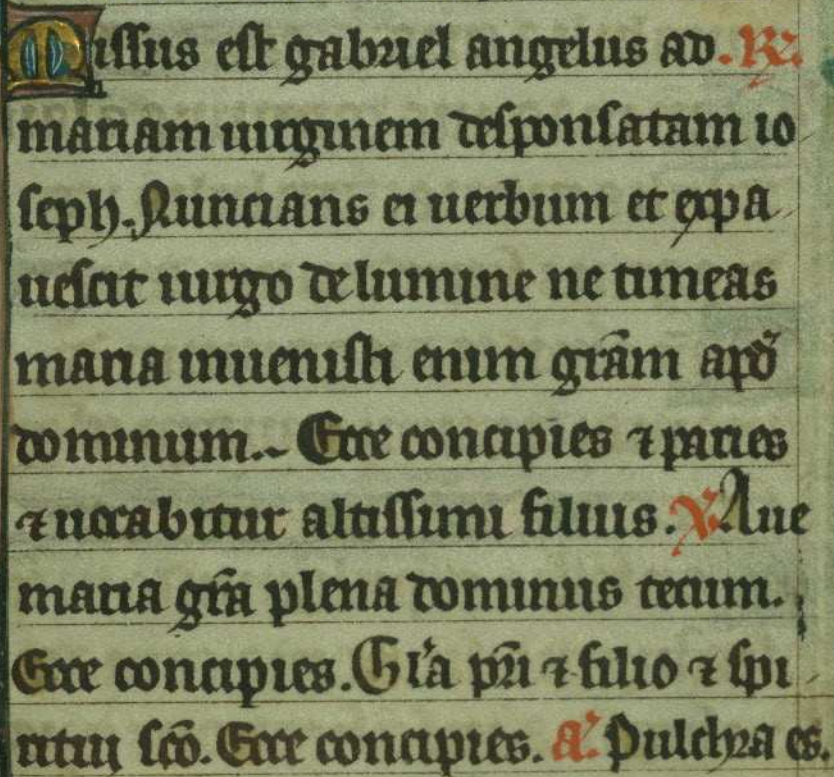 Missus est gabriel angelus ad. R̃.
mariam uirginem desponsatam io
seph. Nuncians ei uerbum et expa
uescit uirgo de lumine ne timeas
maria inuenisti enim grãm apđ
dominum. Ecce concipies ⁊ paries
⁊ uocabitur altissimi filius. ℣ Aue
maria grã plena dominus tecum.
Ecce concipies. Gl'a pr̃i ⁊ filio ⁊ spi
ritui sc̃o. Ecce concipies. a͛. Pulchra es.